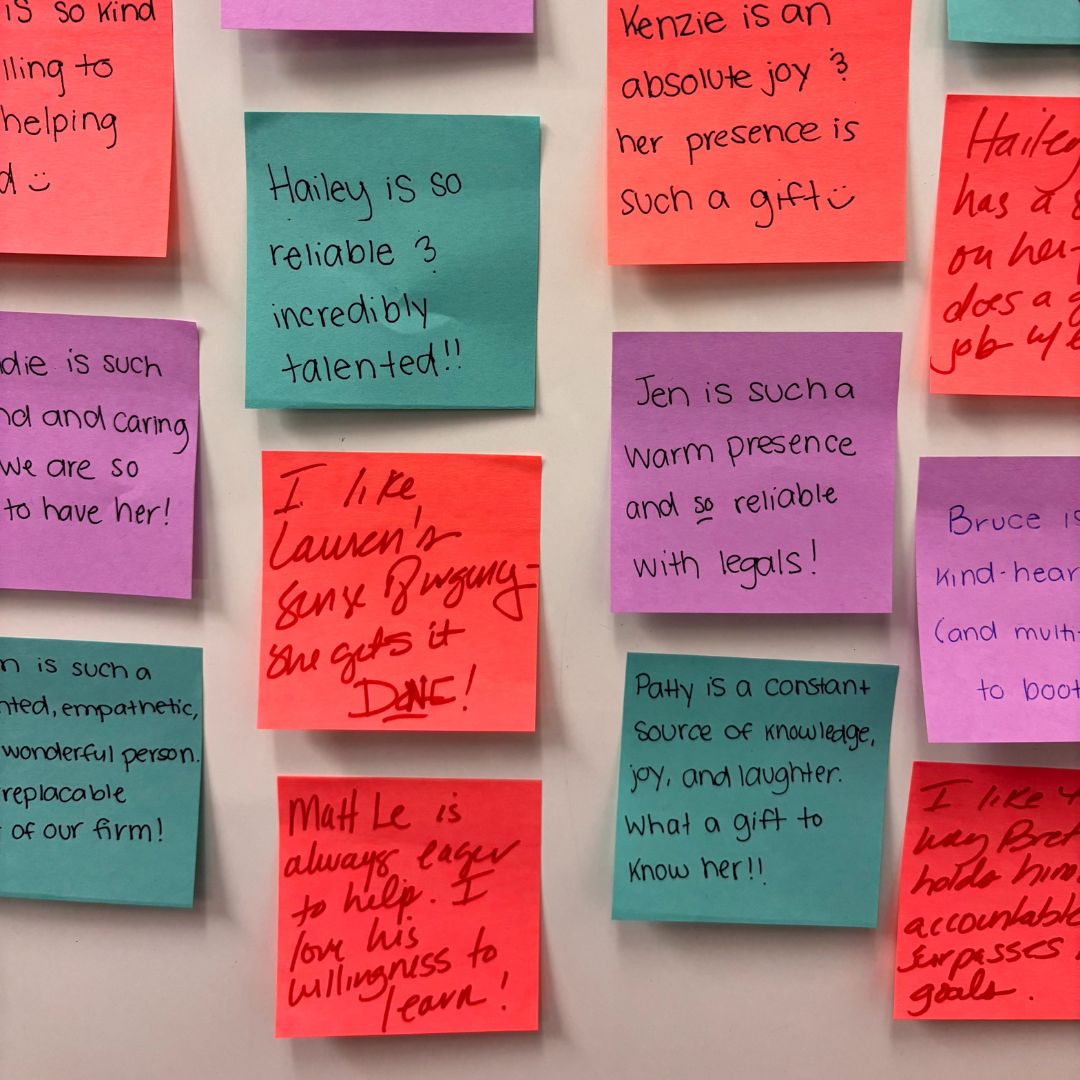 is so kind
lling to
helping
d :)
die is such
nd and caring
we are so
to have her!
n is such a
nted, empathetic,
wonderful person.
replacable
of our firm!
Hailey is so
reliable &
incredibly
talented!!
I like
Lauren's
sense of urgency-
she gets it
DONE!
Matt Le is
always eager
to help. I
love his
willingness to
learn!
Kenzie is an
absolute joy &
her presence is
such a gift :)
Jen is such a
warm presence
and so reliable
with legals!
Patty is a constant
source of knowledge,
joy, and laughter.
What a gift to
know her!!
Hailey
has a
on her
does a g
job w/
Bruce is
kind-hear
(and multi
to boot
I like
way Bret
holds him
accountable
surpasses
goals.